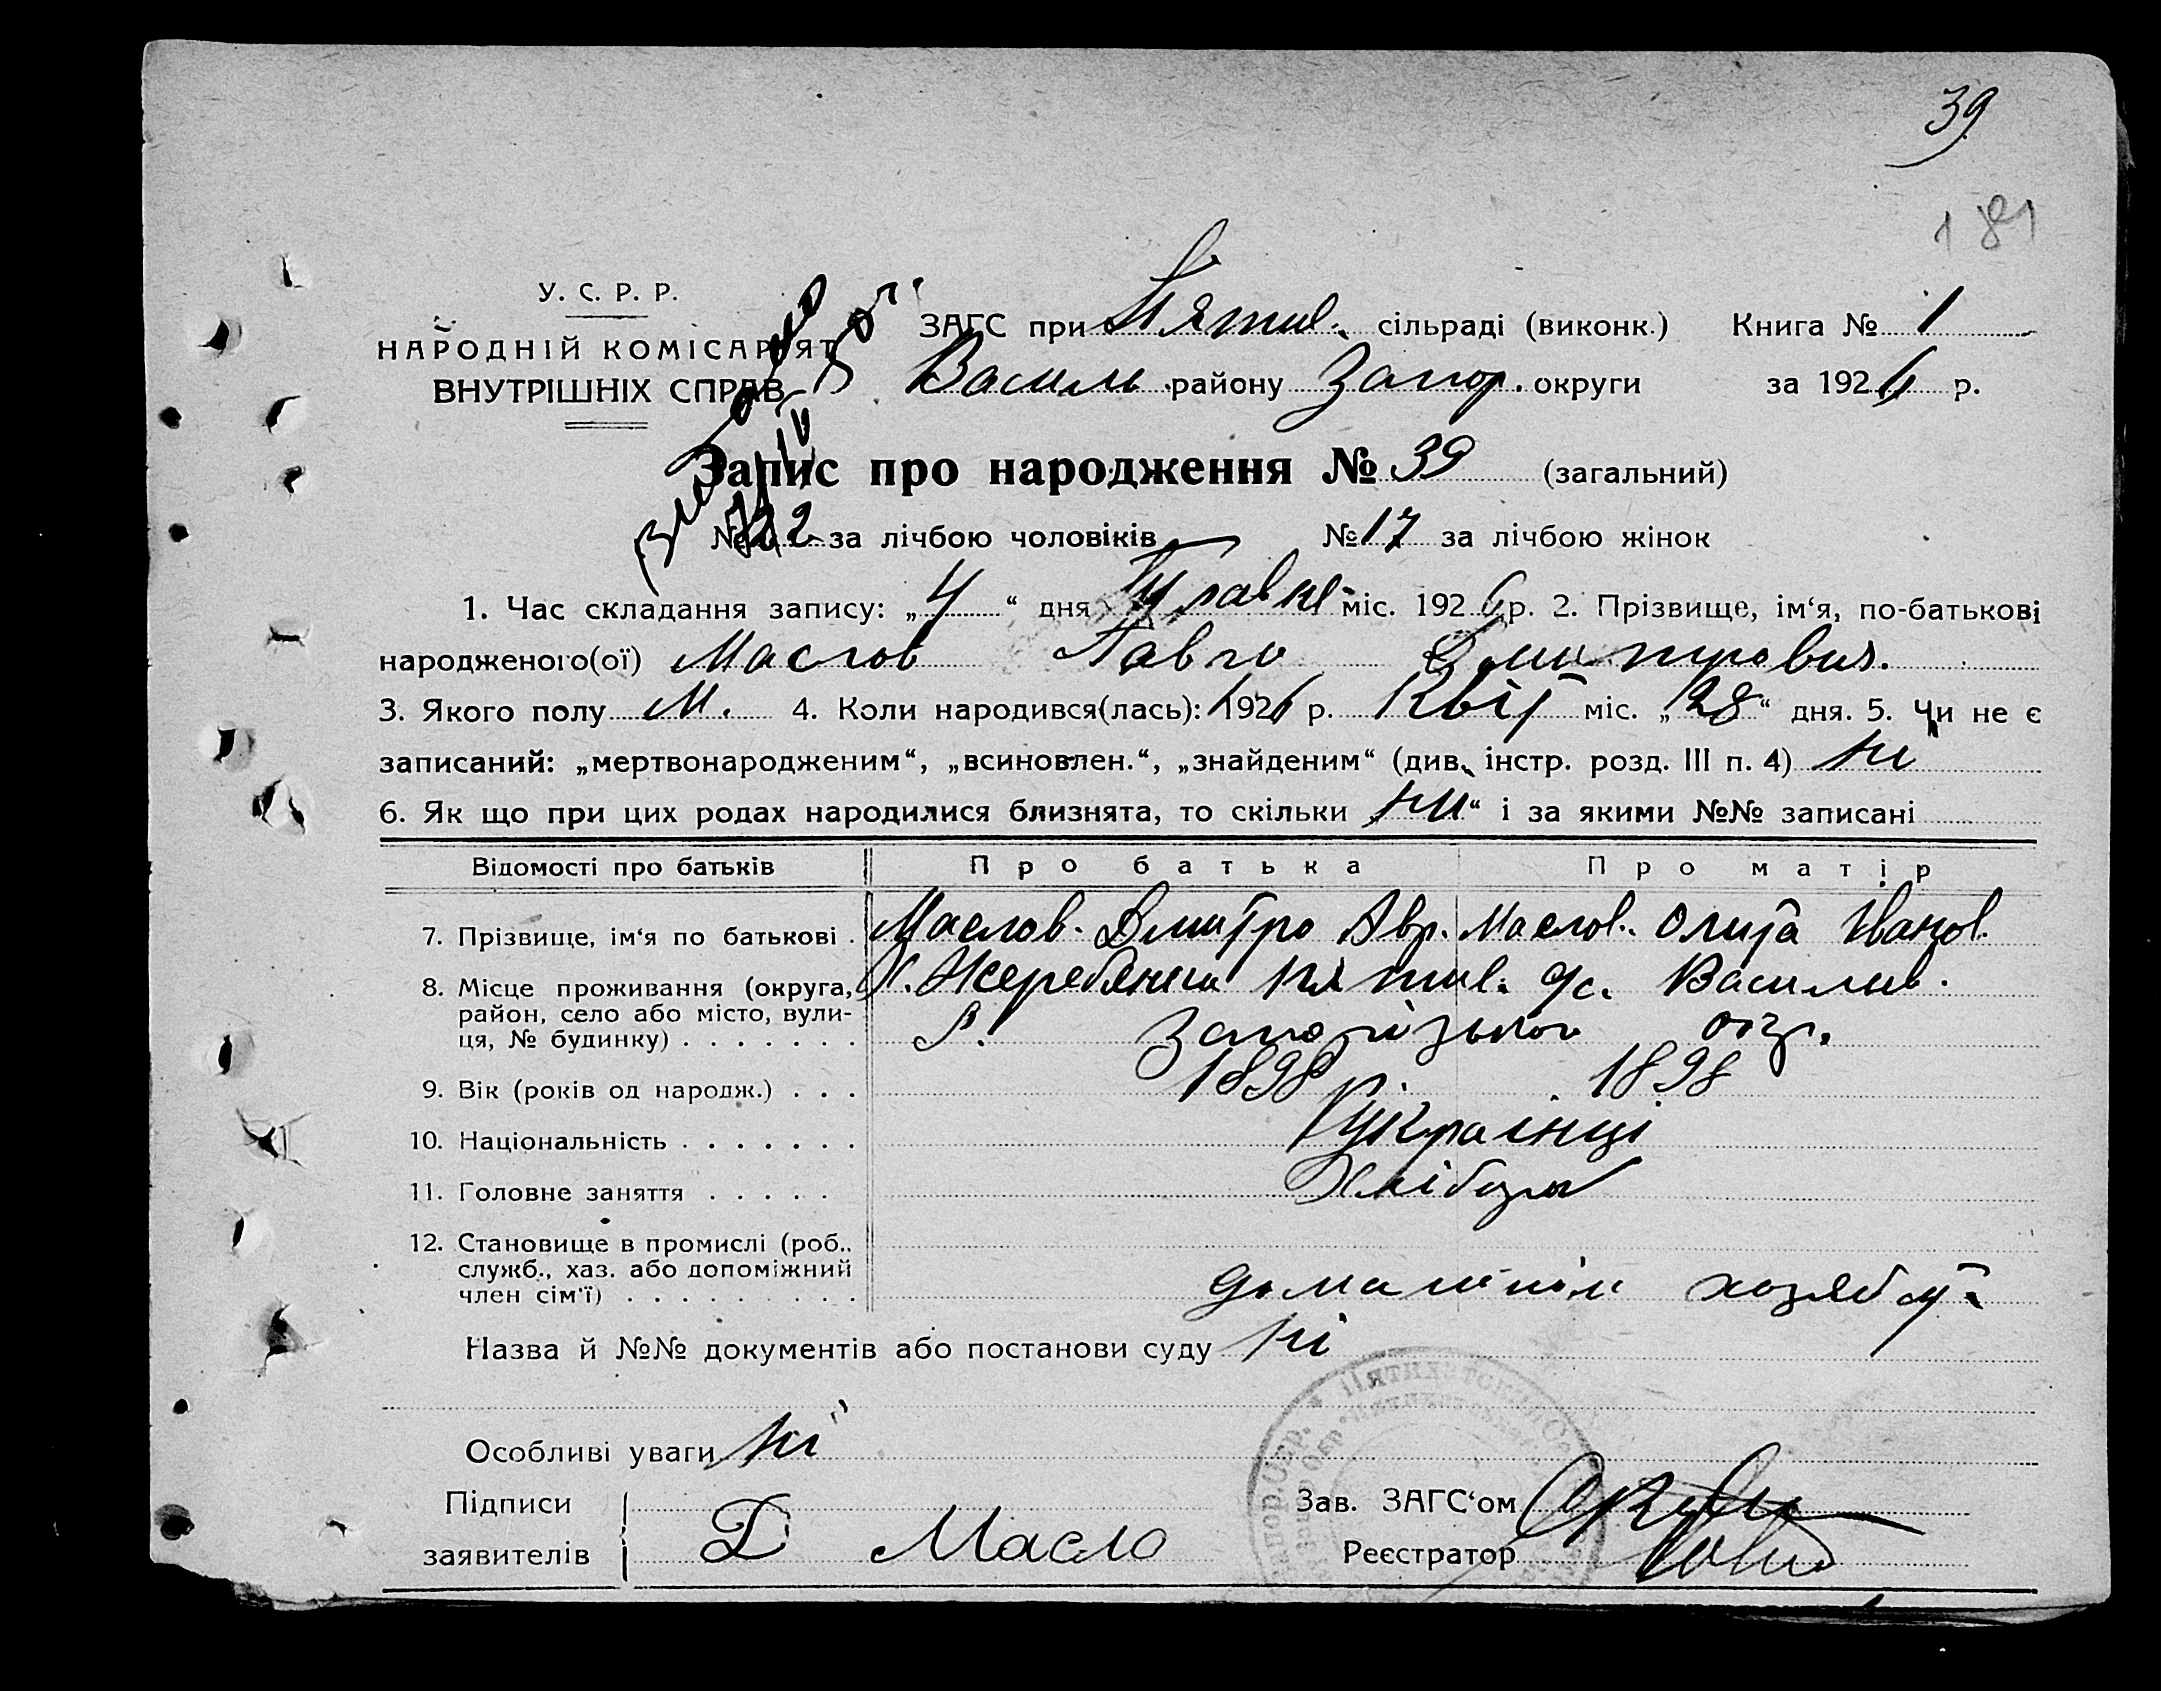 39
181
У. С. Р. Р.
НАРОДНІЙ КОМІСАРІЯТ
ВНУТРІШНІХ СПРАВ
ЗАГС при Пятих. сільраді (виконк.) Книга № 1
Василь району Запор. округи за 1926 р.
Запис про народження № 39 (загальний)
№ 22 за лічбою чоловіків № 17 за лічбою жінок
1. Час складання запису: „4“ дня Травня міс. 1926 р. 2. Прізвище, ім‘я, по-батькові
народженого(ої) Маслов Павло Дмитрович.
3. Якого полу М. 4. Коли народився(лась): 1926 р. Квіт міс. „28“ дня. 5. Чи не є
записаний: „мертвонародженим“, „всиновлен.“, „знайденим“ (див. інстр. розд. III п. 4) ні
6. Як що при цих родах народилися близнята, то скільки „ні“ і за якими №№ записані
Відомості про батьків Про батька Про матір
7. Прізвище, ім‘я по батькові . Маслов. Дмитро Авр. Маслов. Іванов.
8. Місце проживання (округа, Х. Жеребянськ с/с. Василив.
район, село або місто, вули- Р. Запорізької окр.
ця, № будинку) . . . . . . .
9. Вік (років од народж.) . . . 1898 1898
10. Національність . . . . . . . Українці
11. Головне заняття . . . . . Хлібороб
12. Становище в промислі (роб.,
служб., хаз. або допоміжний
член сім‘ї) . . . . . . . . .
Назва й №№ документів або постанови суду ні
Особливі уваги ні
Підписи Зав. ЗАГС‘ом
заявителів Д Масло Реєстратор